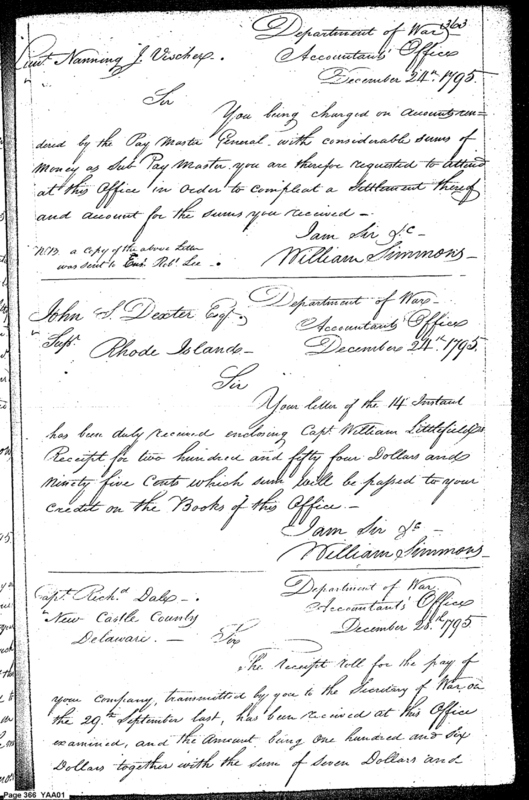 363
Department of War
Lieut. Nanning J. Vischer.
Accountants Office
December 24th. 1795.
Sir
You being charged on accounts ren-
dered by the Pay Master General with considerable sums of
Money as Sub Pay Master you are therefor requested to attend
at this Office in order to compleat a Settlement thereof
and account for the sums you received —
I am Sir &c —
N.B. a Copy of the above Letter
William Simmons —
was sent to Ens. Robt. Lee — .
John S. Dexter Esqr.
Department of War —
Accountants Office
Supr.
Rhode Island —
December 24th. 1795.
Sir
Your letter of the 14 Instant
has been duly received enclosing Capt. William Littlefield's
Receipt for two hundred and fifty four Dollars and
Ninety five Cents which sum will be passed to your
Credit on the Books of this Office. —
I am Sir &c —
William Simmons —
Capt. Richd Dale — .
Department of War
New Castle County
Accountants Office
Delaware. —
December 28th. 1795
Sir
The receipt roll for the pay of
your company, transmitted by you to the Secretary of War on
the 29th September last, has been received at this Office
examined, and the Amount being one hundred and six
Dollars together with the sum of seven Dollars and
Page 366 YAA01